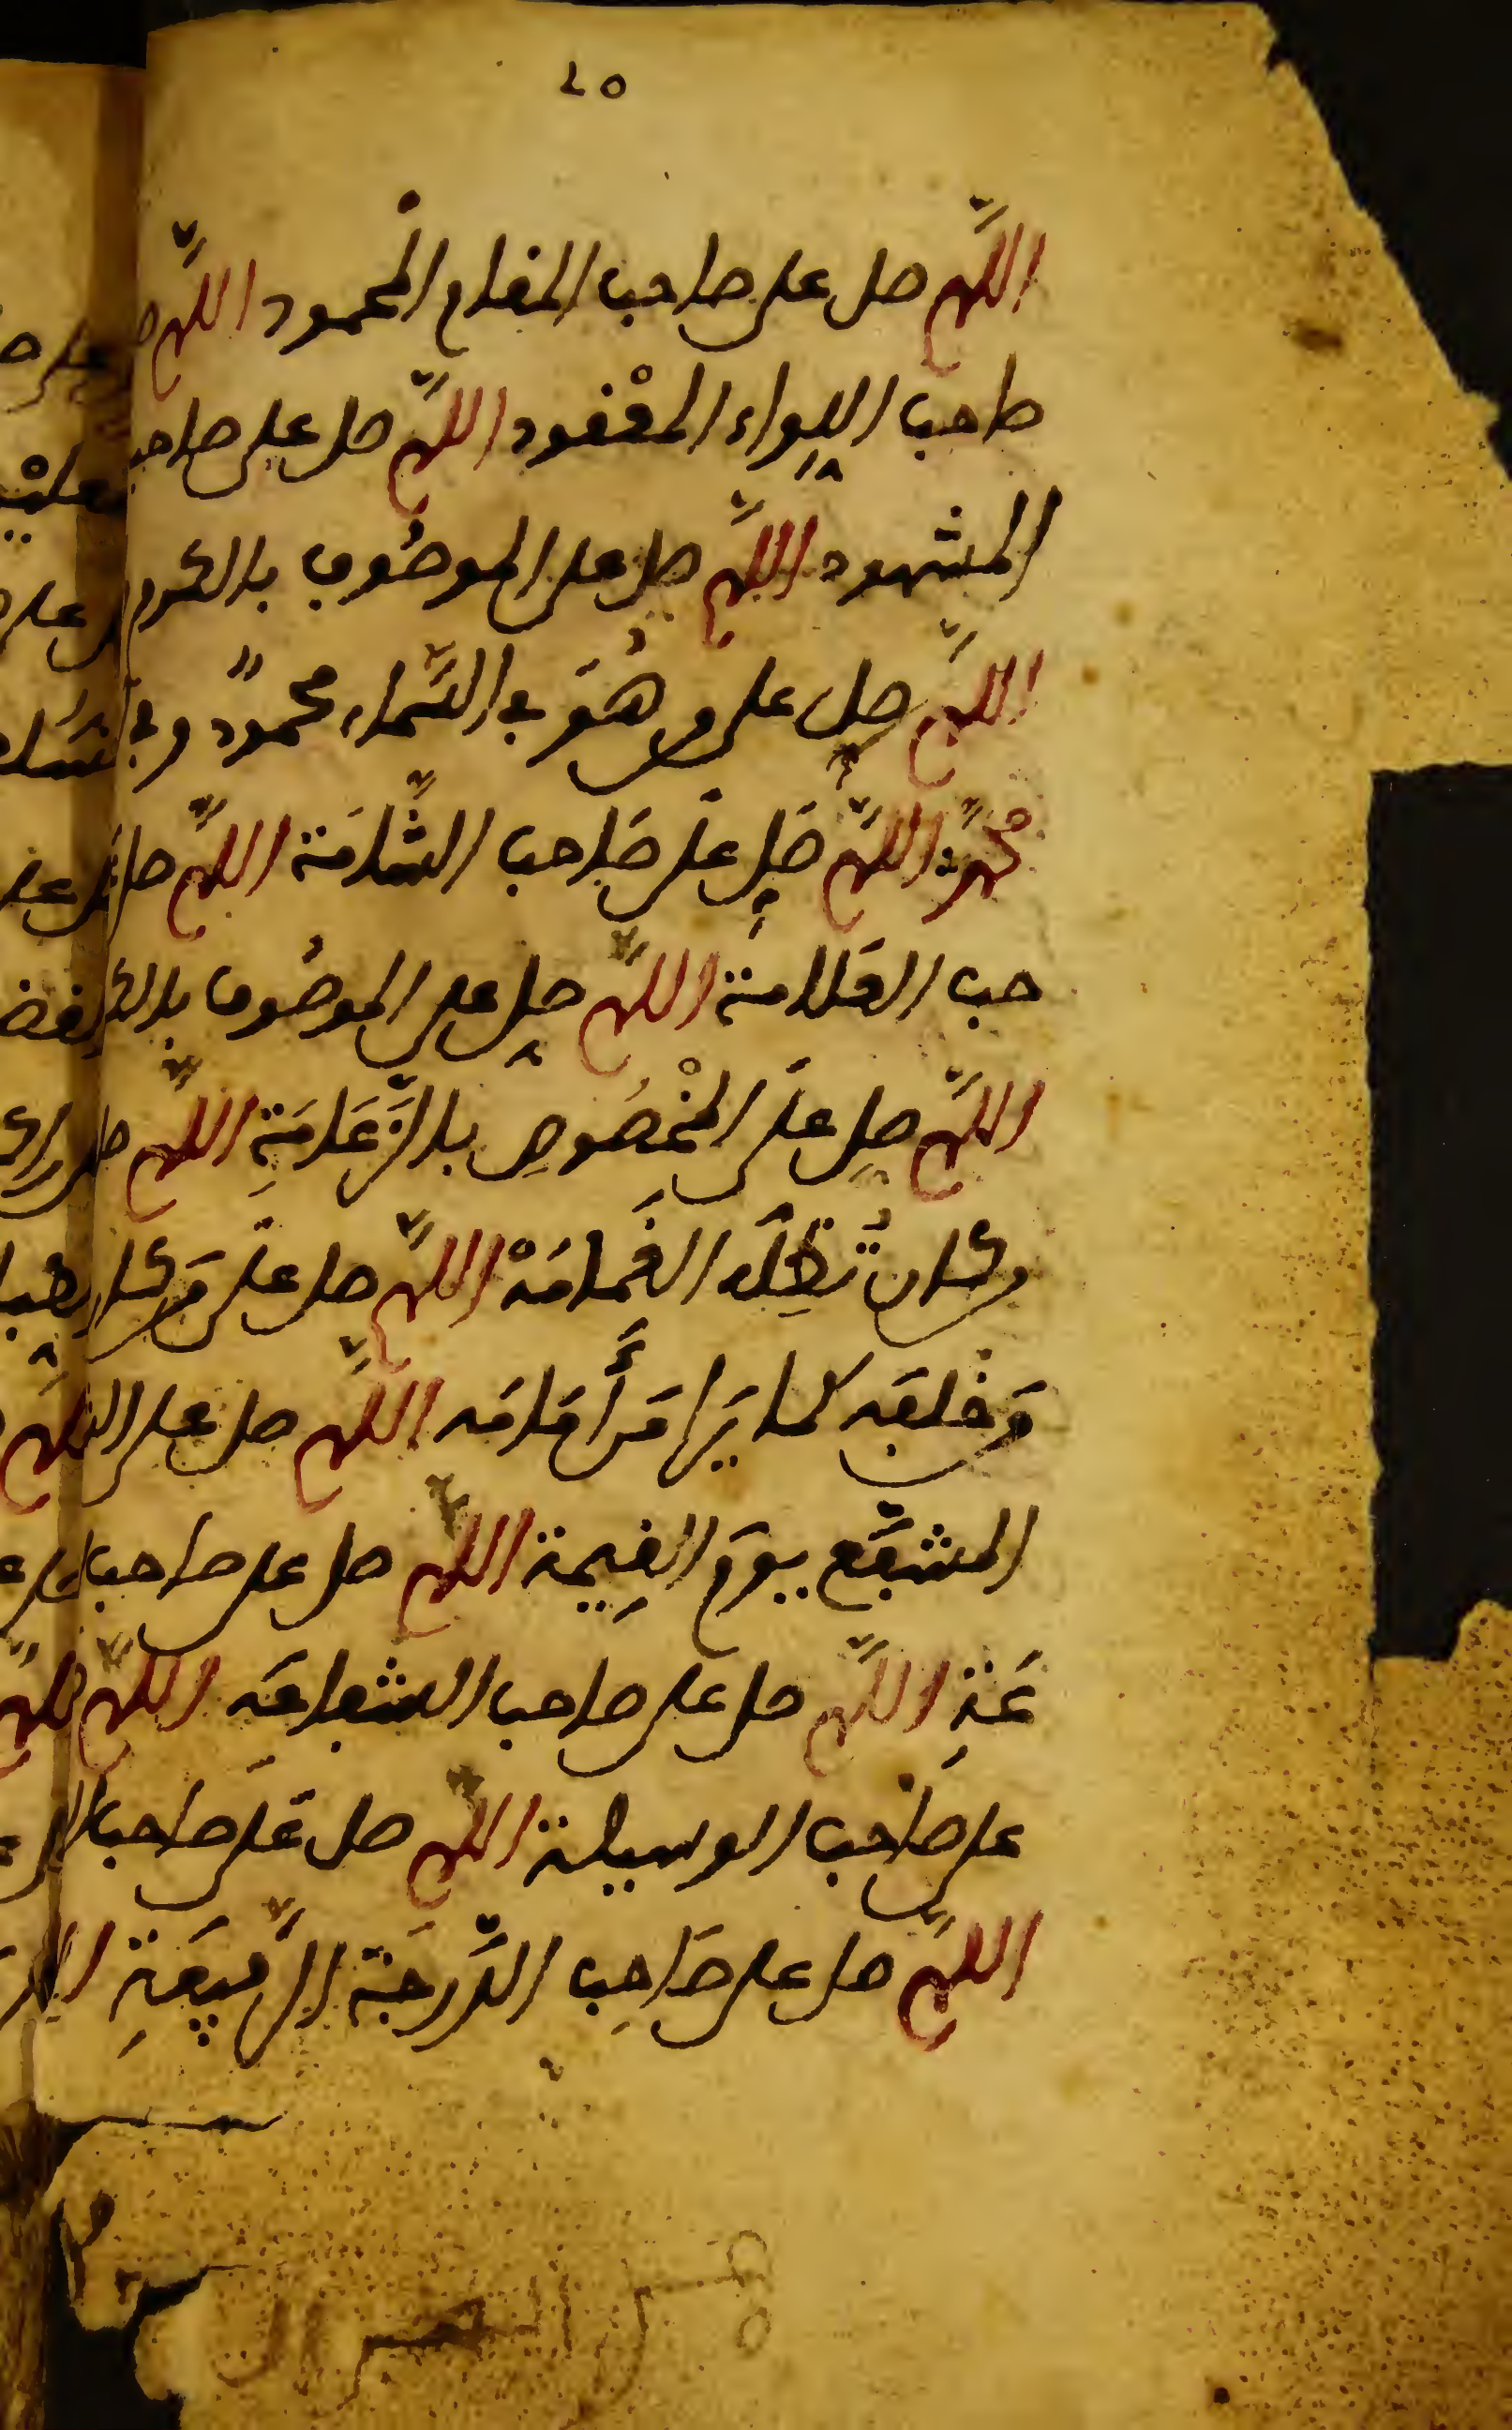 ٤٥
اللهم صل على صاحب المقام المحمود اللهم
صاحب اللواء المعقود اللهم صل على صاحب
المشهود اللهم صل على الموصوف بالكرم
اللهم صل على من هُوَ في السَّماء محمودٌ وفي
محمدٌ اللهم صَلِ عَلَى صَاحب الشَّامَة اللهم صل
حب العَلامة اللهم صلِ على الموصُوف بالكر
اللهم صلِ عَلَى المخْصُوصِ بالزَّعَامَةِ اللهم صل
من كان تُظِلُّه الغَمامَةْ اللهم صل عَلَى مَن كان
مَن خلفه كما يَرَا مَن أَمَامَه اللهم صل على
المشفَّع يوم القِيمة اللهم صل على صاحب
عَةِ اللهم صل على صاحب الشفاعَه اللهم
على صاحب الوسيلة اللهم صل عَلَى صاحب
اللهم صل على صَاحِب الدَّرَجَة الرَّفِيعَةِ